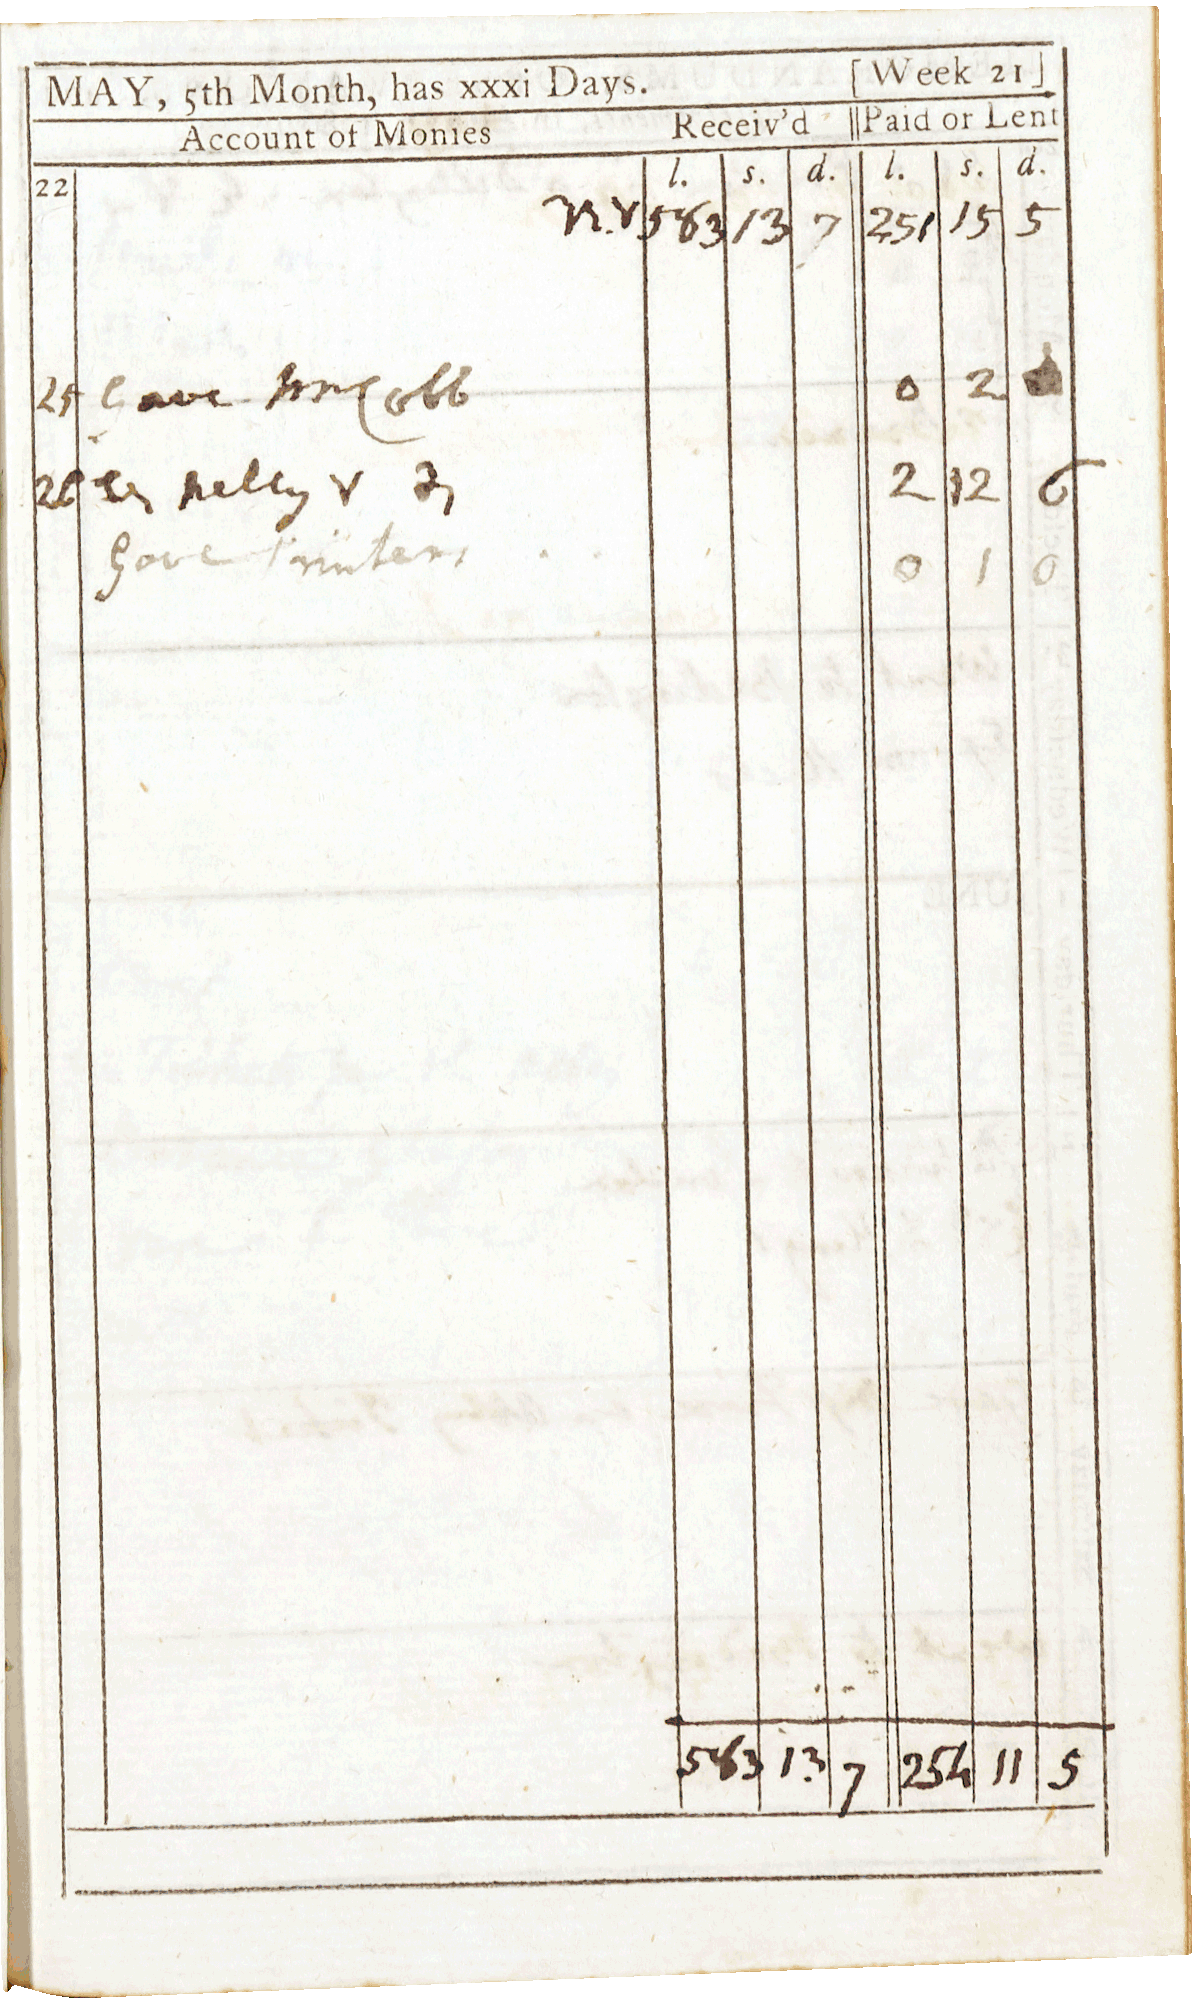 MAY, 5th Month, has xxxi Days. [Week 21]
Account of Monies Receiv'd Paid or Lent
l. s. d. l. s. d.
22
583 13 7 251 15 5
25 Gave Wm Cobb 0 2
26 Nelly 2 12 6
Gave Printers 0 1 0
583 13 7 254 11 5